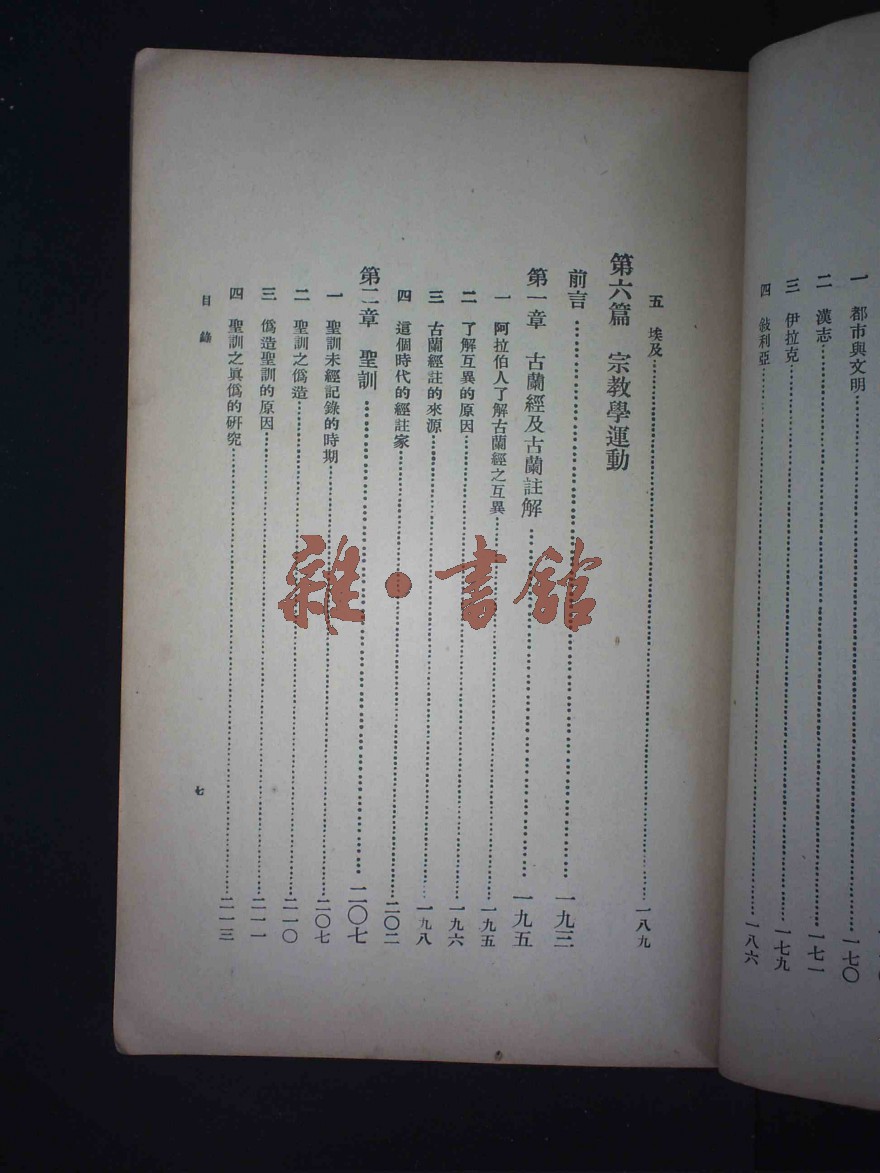 一 都市與文明 一七〇
二 漢志 一七一
三 伊拉克 一七九
四 敍利亞 一八六
五 埃及 一八九
第六篇 宗教學運動
前言 一九三
第一章 古蘭經及古蘭註解 一九五
一 阿拉伯人了解古蘭經之互異 一九五
二 了解互異的原因 一九六
三 古蘭經註的來源 一九八
四 這個時代的經註家 二〇二
第二章 聖訓 二〇七
一 聖訓未經記錄的時期 二〇七
二 聖訓之僞造 二一〇
三 僞造聖訓的原因 二一一
四 聖訓之眞僞的研究 二一三
目錄
七
雜·書館